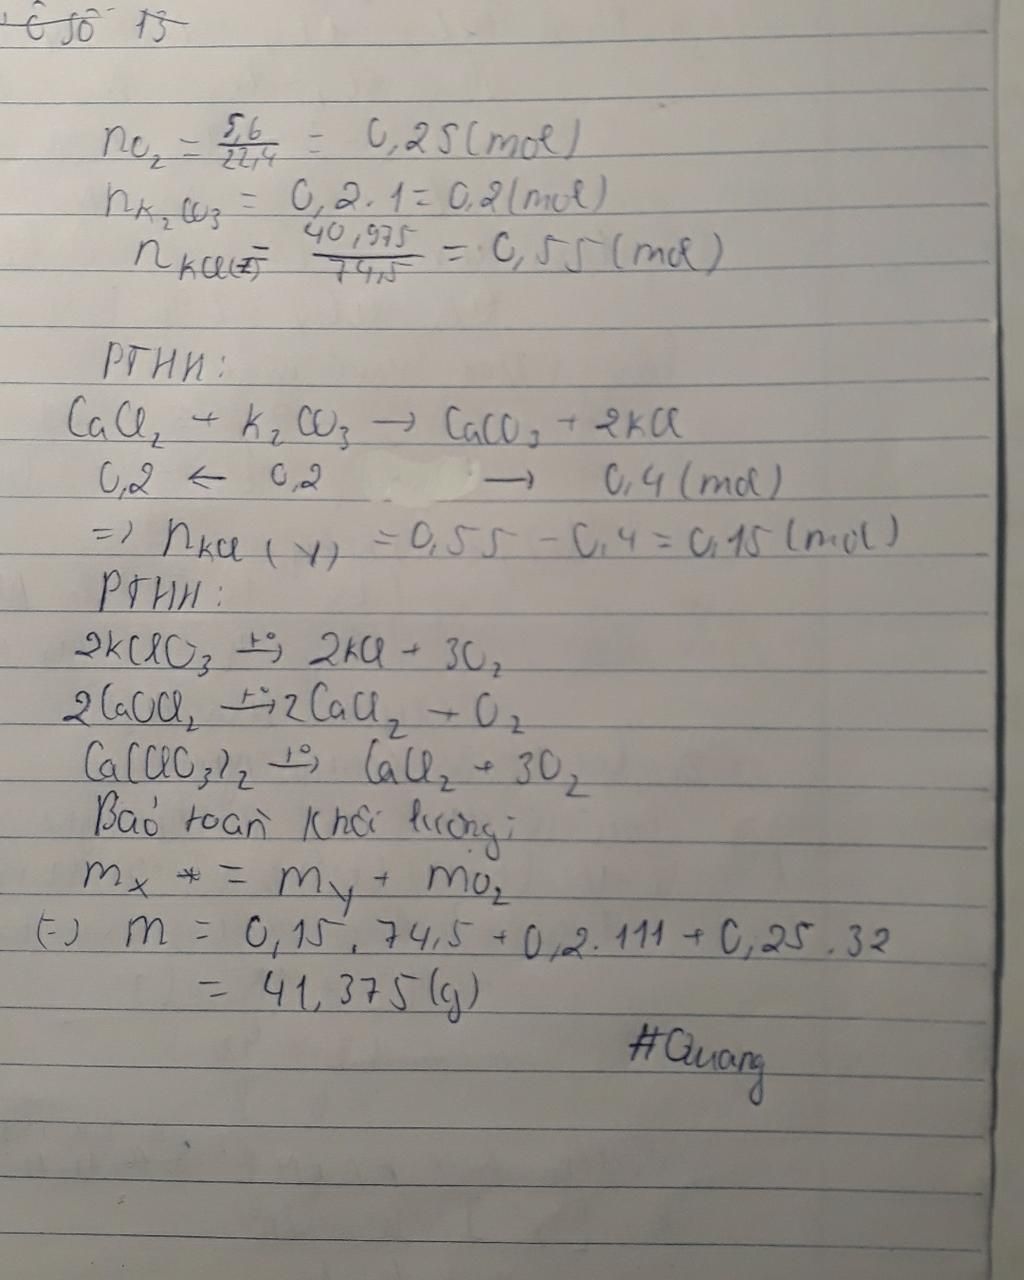 số 13
nO₂ = 5,6/22,4 = 0,25 (mol)
nK₂CO₃ = 0,2 . 1 = 0,2 (mol)
nKCl(Z) = 40,975/74,5 = 0,55 (mol)
PTHH:
CaCl₂ + K₂CO₃ → CaCO₃ + 2KCl
0,2 ← 0,2 → 0,4 (mol)
=> nKCl (Y) = 0,55 - 0,4 = 0,15 (mol)
PTHH:
2KClO₃ –t°→ 2KCl + 3O₂
2CaOCl₂ –t°→ 2CaCl₂ + O₂
Ca(ClO₃)₂ –t°→ CaCl₂ + 3O₂
Bảo toàn khối lượng:
mX = mY + mO₂
(=) m = 0,15 . 74,5 + 0,2 . 111 + 0,25 . 32
= 41,375 (g)
#Quang